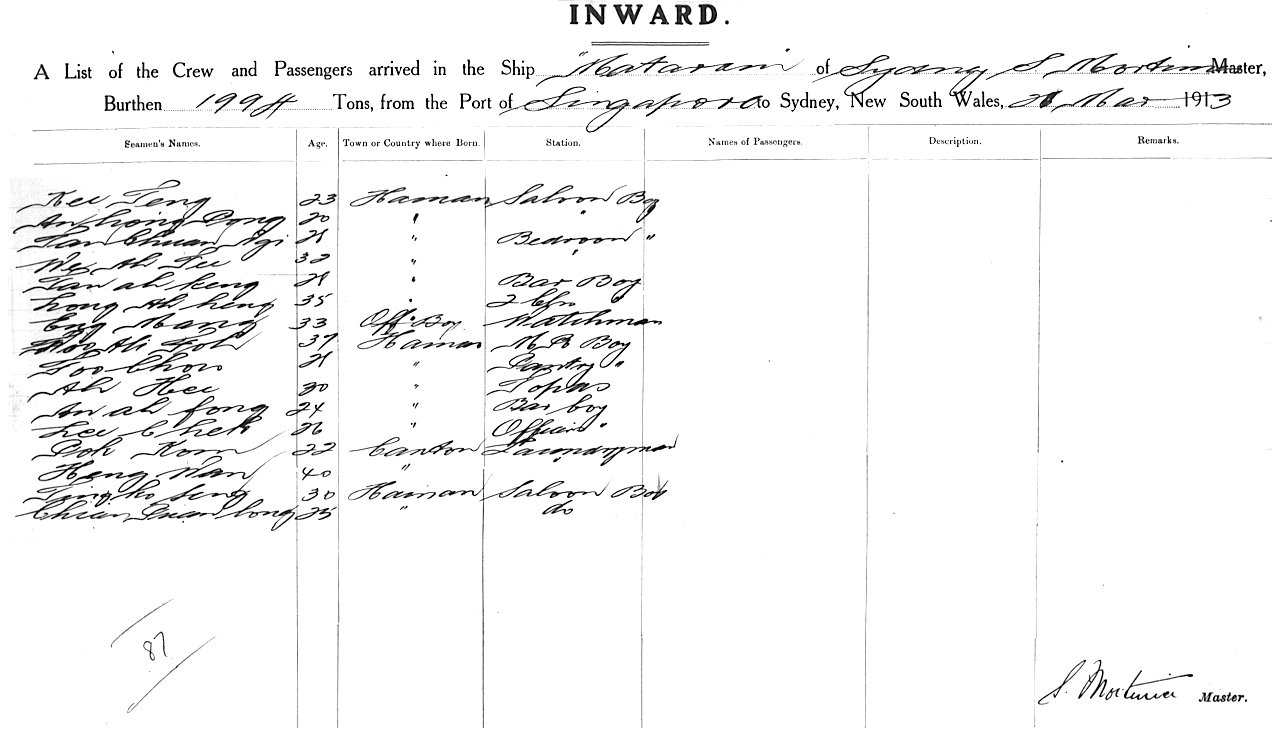 INWARD.
A List of the Crew and Passengers arrived in the Ship "Mataram" of Sydney S. Mortimer Master,
Burthen Tons, from the Port of Singapore to Sydney, New South Wales, Mar 1913
Seamen's Names. Age. Town or Country where Born. Station. Names of Passengers. Description. Remarks.
Kee Teng 23 Hainan Saloon Boy
An Hong Dong 20 " "
Tan Chuan " Bedroom "
We Ah Tee 32 " "
Tan ah keng " Bar Boy
Long Ah heng 35 "
Eng Mang 33 Off. Boy Watchman
Ah Foh 37 Hainan M R Boy
Foo Chow " Pantry "
Ah Hee 30 " Topas
An ah fong 24 " Bar boy
Lee Chek 26 " Officers "
Dok Kom 22 Canton Laundryman
Heng Wan 40 " "
Ting ko seng 30 Hainan Saloon Boy
Chian Duan Long 25 " do
87
S. Mortimer Master.